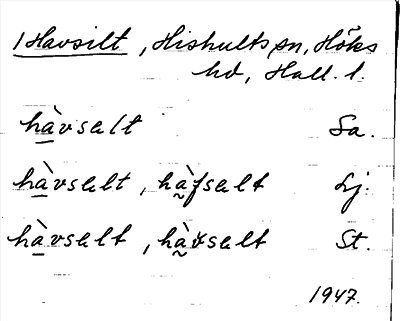 1 Havsilt, Hishults sn, Höks
hd, Hall. l.
hàvsalt Sa.
hàvsalt, hàfsalt Lj.
hàvsalt, hàv̌salt St.
1947.